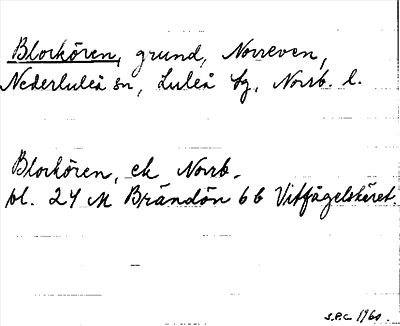 Blockören, grund, Norreven,
Nederluleå sn, Luleå tg, Norrb. l.
Blockören, ek Norrb.
bl. 24 M Brändön 6 b Vitfågelskäret.
S.P.C. 1960.